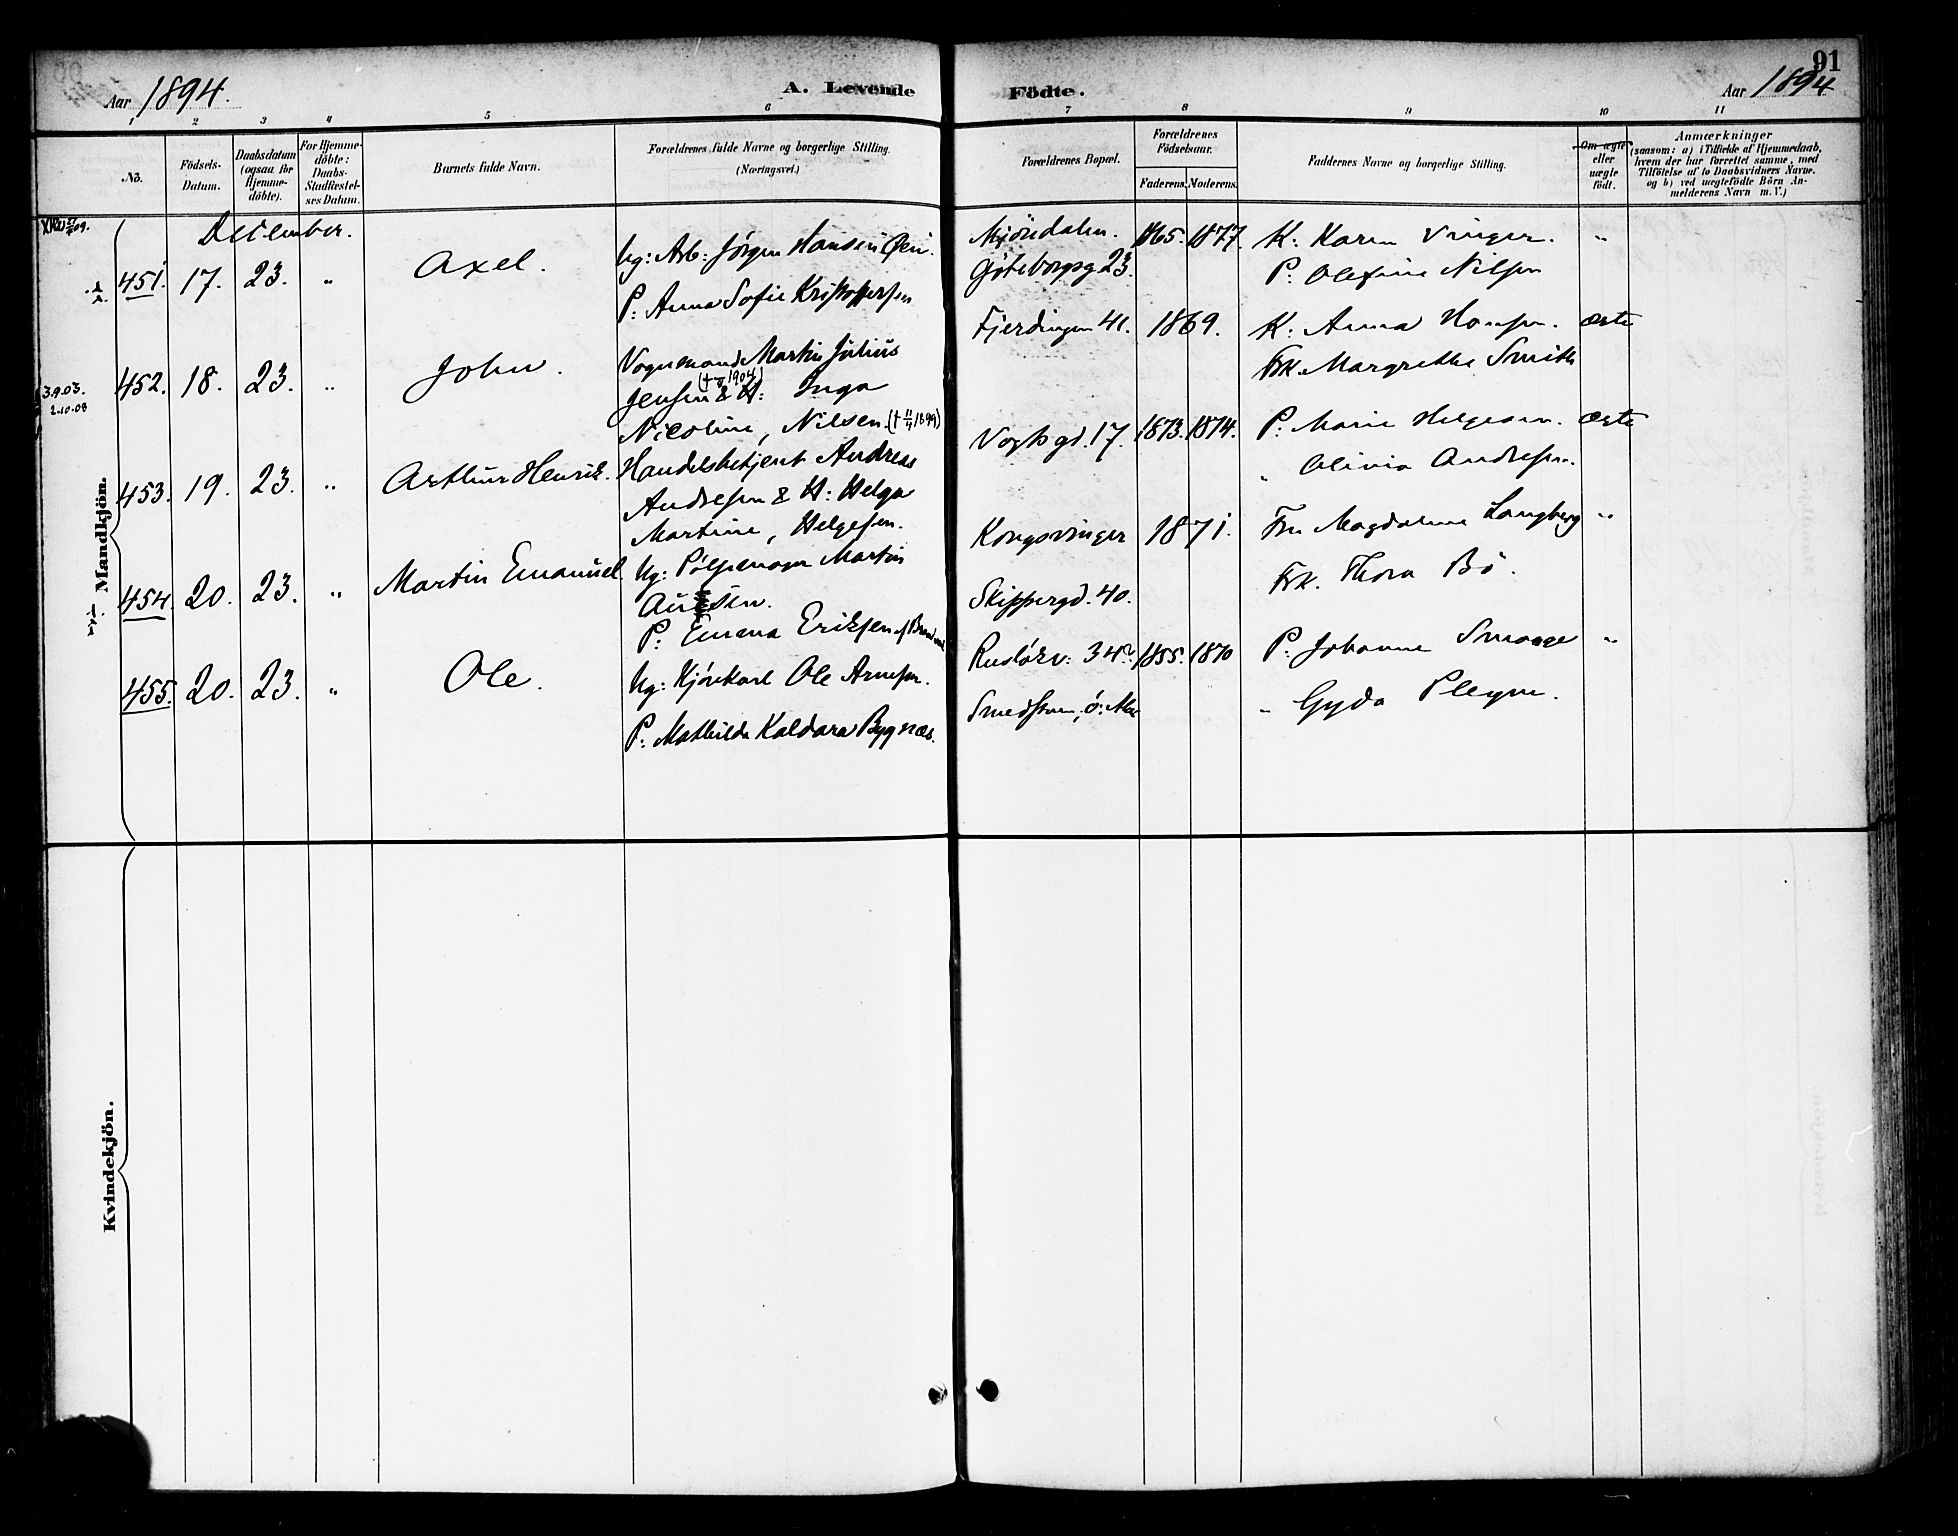 91
Aar 1894.
A. Levende Födte.
Aar 1894
1 2 3 4 5 6 7 8 9 10 11
No.
Födsels-Datum.
Daabsdatum (ogsaa for Hjemme-döbte).
For Hjemme-döbte: Daabs-Stadfæstel-ses Datum.
Barnets fulde Navn.
Forældrenes fulde Navne og borgerlige Stilling. (Næringsvei.)
Forældrenes Bopæl.
Forældrenes Födselsaar.
Faderens. Moderens.
Faddernes Navne og borgerlige Stilling.
Om ægte eller uægte født.
Anmærkninger
(saasom: a) i Tilfælde af Hjemmedaab, hvem der har forrettet samme, med Tilföielse af to Daabsvidners Navne. og b) ved uægtefödte Börn Anmelderens Navn m. V.)
Mandkjön.
December.
451. 17. 23. " Axel.
Ug: Arb: Jørgen Hansen Øen.
P: Anna Sofie Kristoffersen
Mjöndalen.
Göteborgsg 23.
1865. 1877.
K: Karen Vinger.
P: Olefine Nilsen
"
3.9.03.
2.10.08
452. 18. 23. " John.
Vognmand Martin Julius
Jensen & H: Inga
Nicoline, Nilsen.
Fjerdingen 41.
1869.
K. Anna Hansen.
Frk. Margrethe Smith
ægte
453. 19. 23. " Arthur Henrik.
Handelsbetjent Andreas
Andresen & H: Helga
Martine, Helgesen.
Vogtsgd. 17.
1873. 1874.
P: Marie Helgesen.
" Olivia Andresen.
ægte
454. 20. 23. " Martin Emanuel.
Ug: Pölsemager Martin
P: Emma Eriksen
Kongsvinger
Skippergd. 40.
1871.
Fru Magdalene Langberg
Frk. Thora Bö.
"
455. 20. 23. " Ole.
Ug: Kjörekarl Ole Arnesen.
P: Mathilde Kaldara Bygnæs.
1855. 1870
P: Johanne
" Gyda
"
Kvindekjön.